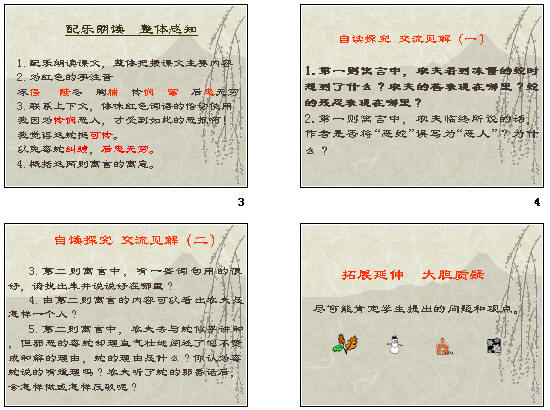 配乐朗读 整体感知
1.配乐朗读课文,整体把握课文主要内容
2.为红色的字注音
冻僵 隆冬 胸脯 怜悯 窜 后患无穷
3.联系上下文,体味红色词语的恰切使用
我因为怜悯恶人,才受到如此的恶报啊!
我觉得这蛇挺可怜。
以免毒蛇纠缠,后患无穷。
4.概括这两则寓言的寓意。
3
自读探究 交流见解(一)
1.第一则寓言中,农夫看到冻僵的蛇时
想到了什么?农夫的善表现在哪里?蛇
的恶表现在哪里?
2.第一则寓言中,农夫临终所说的话,
作者是否将“恶蛇”误写为“恶人”?为什
么?
4
自读探究 交流见解(二)
3.第二则寓言中,有一些词句用的很
好,请找出来并说说好在哪里?
4.由第二则寓言的内容可以看出农夫是
怎样一个人?
5.第二则寓言中,农夫去与蛇似乎讲和
,但邪恶的毒蛇却理直气壮地阐述了它不赞
成和解的理由,蛇的理由是什么?你认为毒
蛇说的有道理吗?农夫听了蛇的那番话后,
会怎样做或怎样反驳呢?
拓展延伸 大胆质疑
尽可能肯定学生提出的问题和观点。